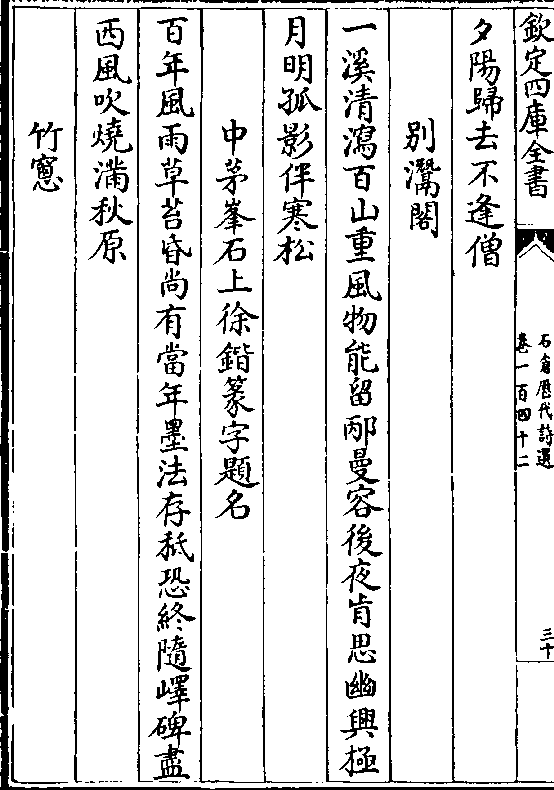 欽定四庫全書
石倉歷代詩選
卷一百四十二
三十
夕陽歸去不逢僧
別灊閣
一溪清瀉百山重風物能留邴曼容後夜肯思幽興極
月明孤影伴寒松
中茅峯石上徐鍇篆字題名
百年風雨草苔昏尚有當年墨法存秖恐終隨嶧碑盡
西風吹燒滿秋原
竹窻